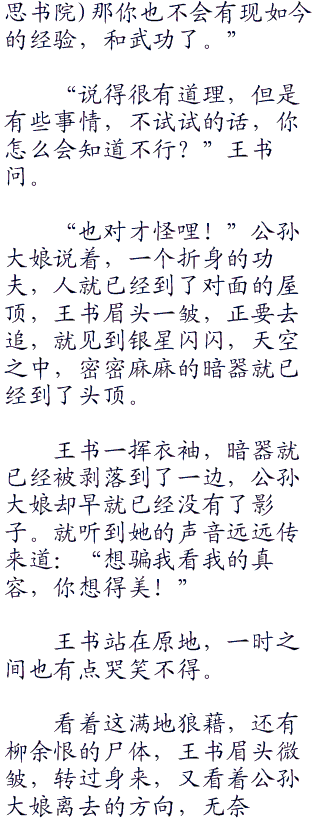 思书院)那你也不会有现如今
的经验，和武功了。”
“说得很有道理，但是
有些事情，不试试的话，你
怎么会知道不行？”王书
问。
“也对才怪哩！”公孙
大娘说着，一个折身的功
夫，人就已经到了对面的屋
顶，王书眉头一皱，正要去
追，就见到银星闪闪，天空
之中，密密麻麻的暗器就已
经到了头顶。
王书一挥衣袖，暗器就
已经被剥落到了一边，公孙
大娘却早就已经没有了影
子。就听到她的声音远远传
来道：“想骗我看我的真
容，你想得美！”
王书站在原地，一时之
间也有点哭笑不得。
看着这满地狼藉，还有
柳余恨的尸体，王书眉头微
皱，转过身来，又看着公孙
大娘离去的方向，无奈